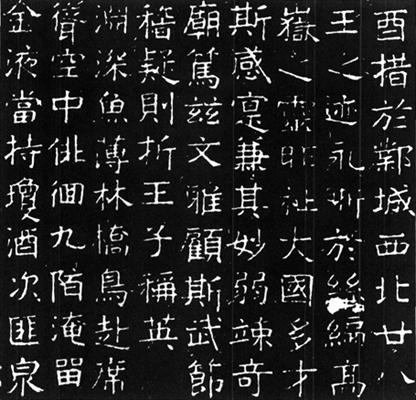 酉措於鄴城西北廿八
王之迹永於編高
嶽之靈昭祉大國多才
斯感寔兼其妙弱竦奇
廟篤茲文雅顧斯武節
穡疑則折王子稱英
淵深魚薄林憍鳥赴席
聳空中俳佪九陌淹留
金液當持瓊酒次匪泉